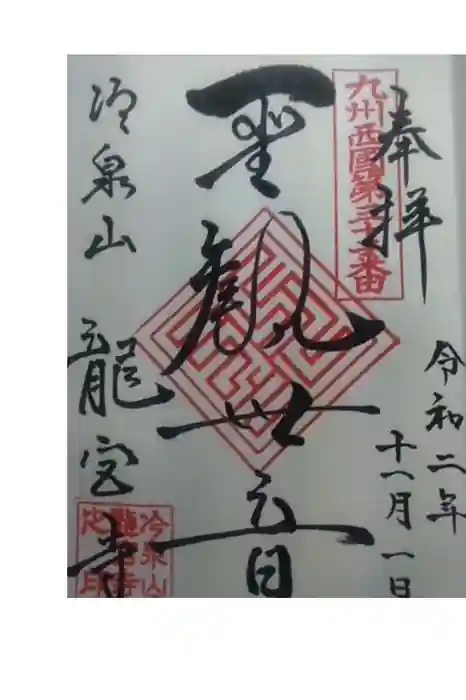 奉拝
九州西國第三十二番
令和二年
十一月一日
聖観世音
冷泉山 龍宮寺
冷泉山
龍宮寺
之印